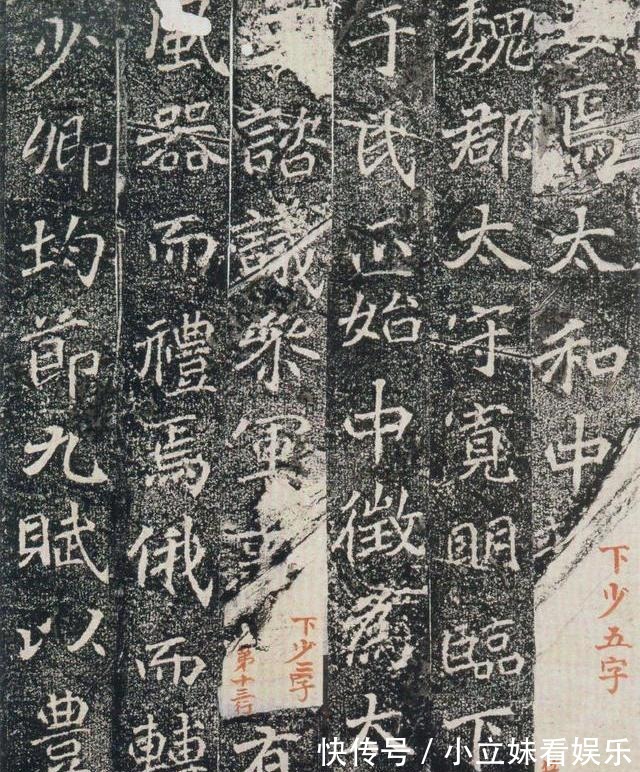 焉太和中
下少五字
魏郡太守寬明臨下
于氏正始中徵爲太
諮議參軍事
下少三字
第十三行
有
風器而禮焉俄而轉
少卿均節九賦以豊
快传号 / 小立妹看娱乐